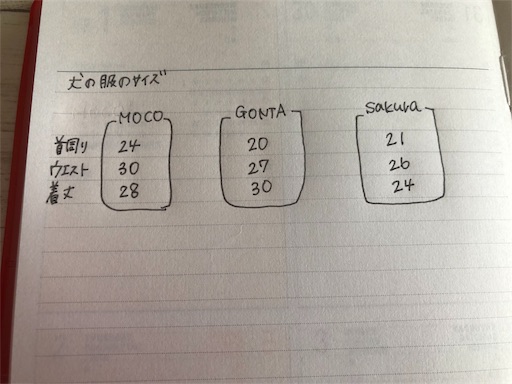 犬の服のサイズ
MOCO GONTA Sakura
首回り 24 20 21
ウエスト 30 27 26
着丈 28 30 24